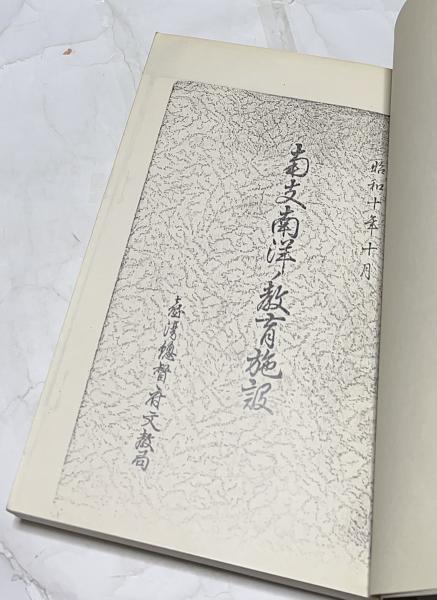 昭和十年十月
南支南洋ノ教育施設
臺灣總督府文教局